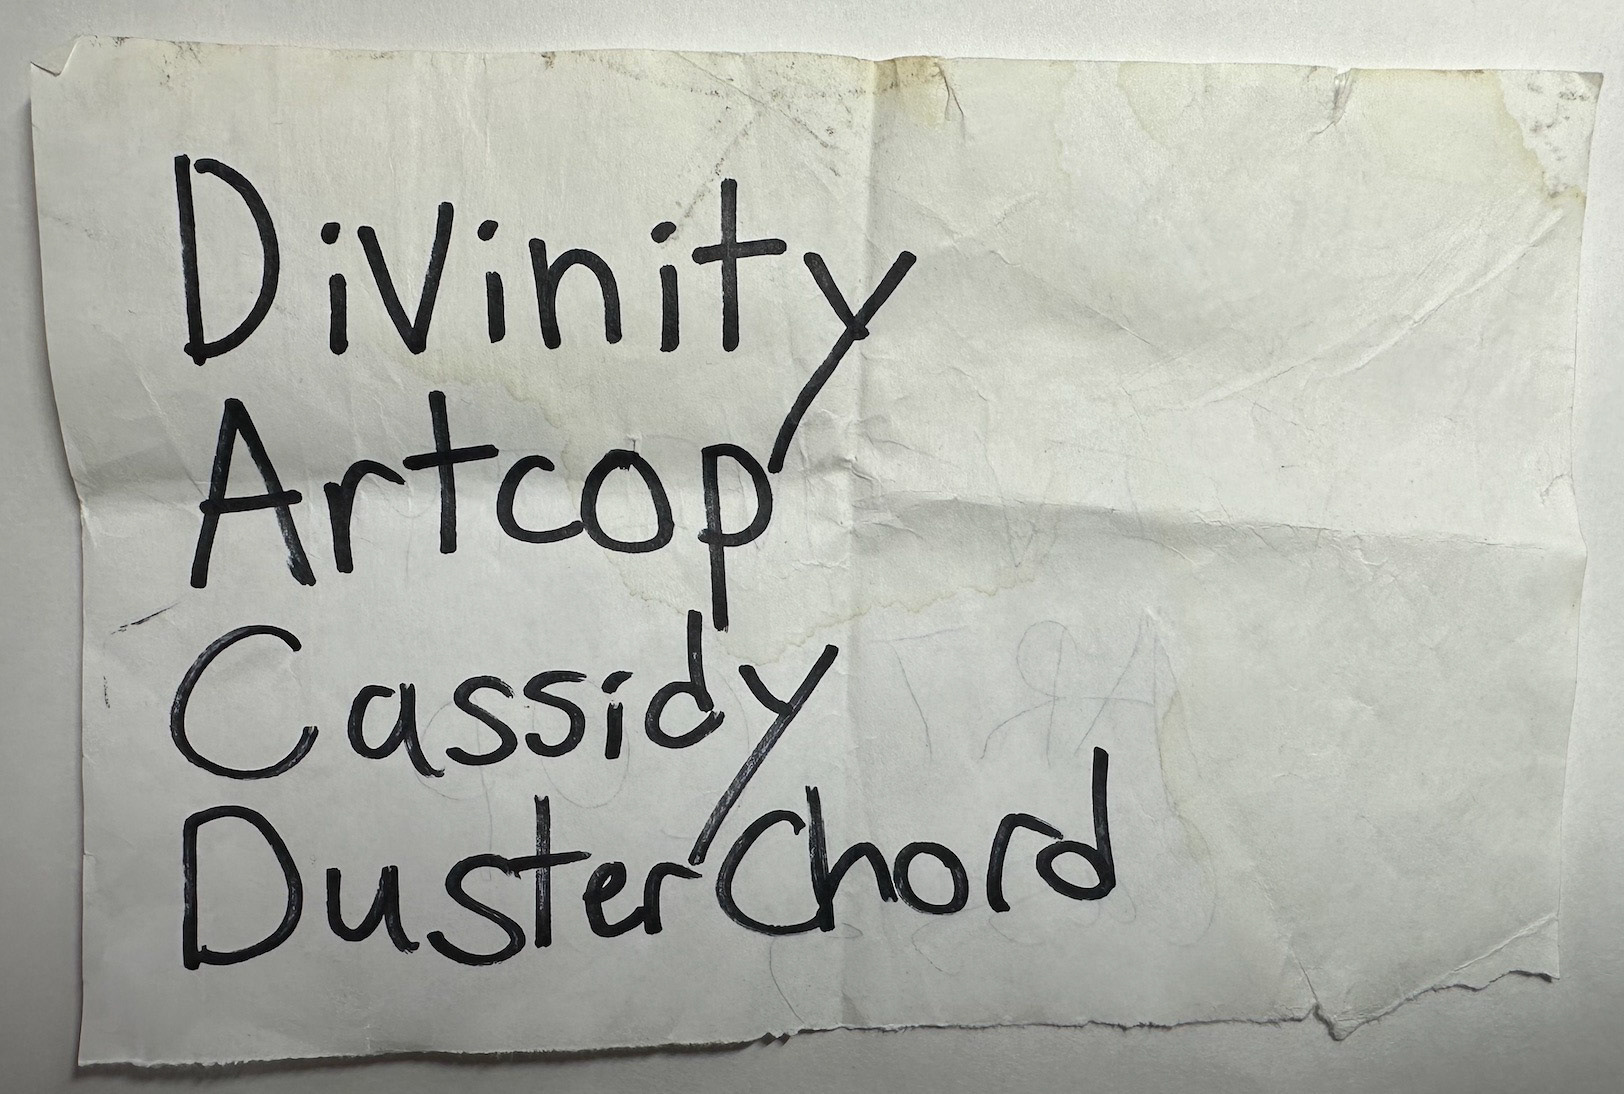 Divinity
Artcop
Cassidy
DusterChord